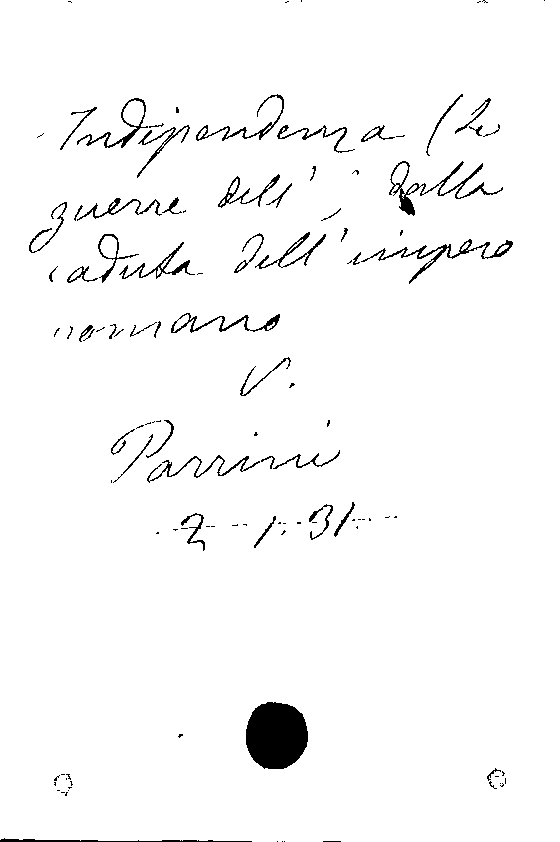 Indipendenza (Le
guerre dell', dalla
caduta dell'impero
romano
V.
Parrini
2 - 1. 31